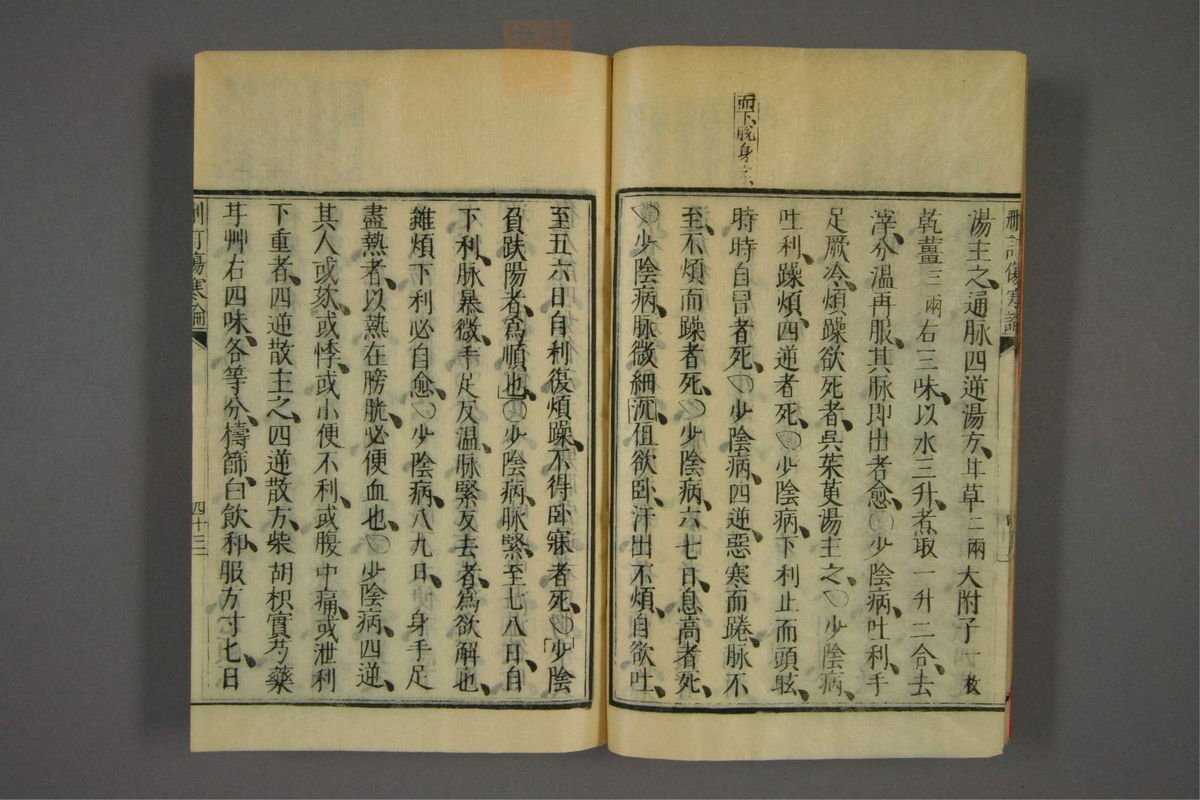 而下脫身字
刪訂傷寒論
湯主之、通脉四逆湯方、甘草二兩大附子一枚
乾薑三兩右三味、以水三升、煮取一升二合、去
滓、分溫再服、其脉即出者愈、〇少陰病、吐利、手
足厥冷、煩躁欲死者、吳茱萸湯主之、〇少陰病、
吐利、躁煩、四逆者死、〇少陰病、下利止而頭眩、
時時自冒者死、〇少陰病、四逆、惡寒而踡、脉不
至、不煩而躁者死、〇少陰病、六七日、息高者死、
〇少陰病、脉微細沉、但欲卧、汗出不煩、自欲吐、
至五六日、自利、復煩躁、不得卧寐者死、〇「少陰
負趺陽者、爲順也」〇少陰病、脉緊、至七八日、自
下利、脉暴微、手足反温、脉緊反去者、爲欲解也、
雖煩下利必自愈、〇少陰病、八九日、一身手足
盡熱者、以熱在膀胱、必便血也、〇少陰病、四逆、
其人或欬、或悸、或小便不利、或腹中痛、或泄利
下重者、四逆散主之、四逆散方、柴胡枳實芍藥
甘艸右四味、各等分、檮篩、白飮和、服方寸七、日
刪訂傷寒論
四十三